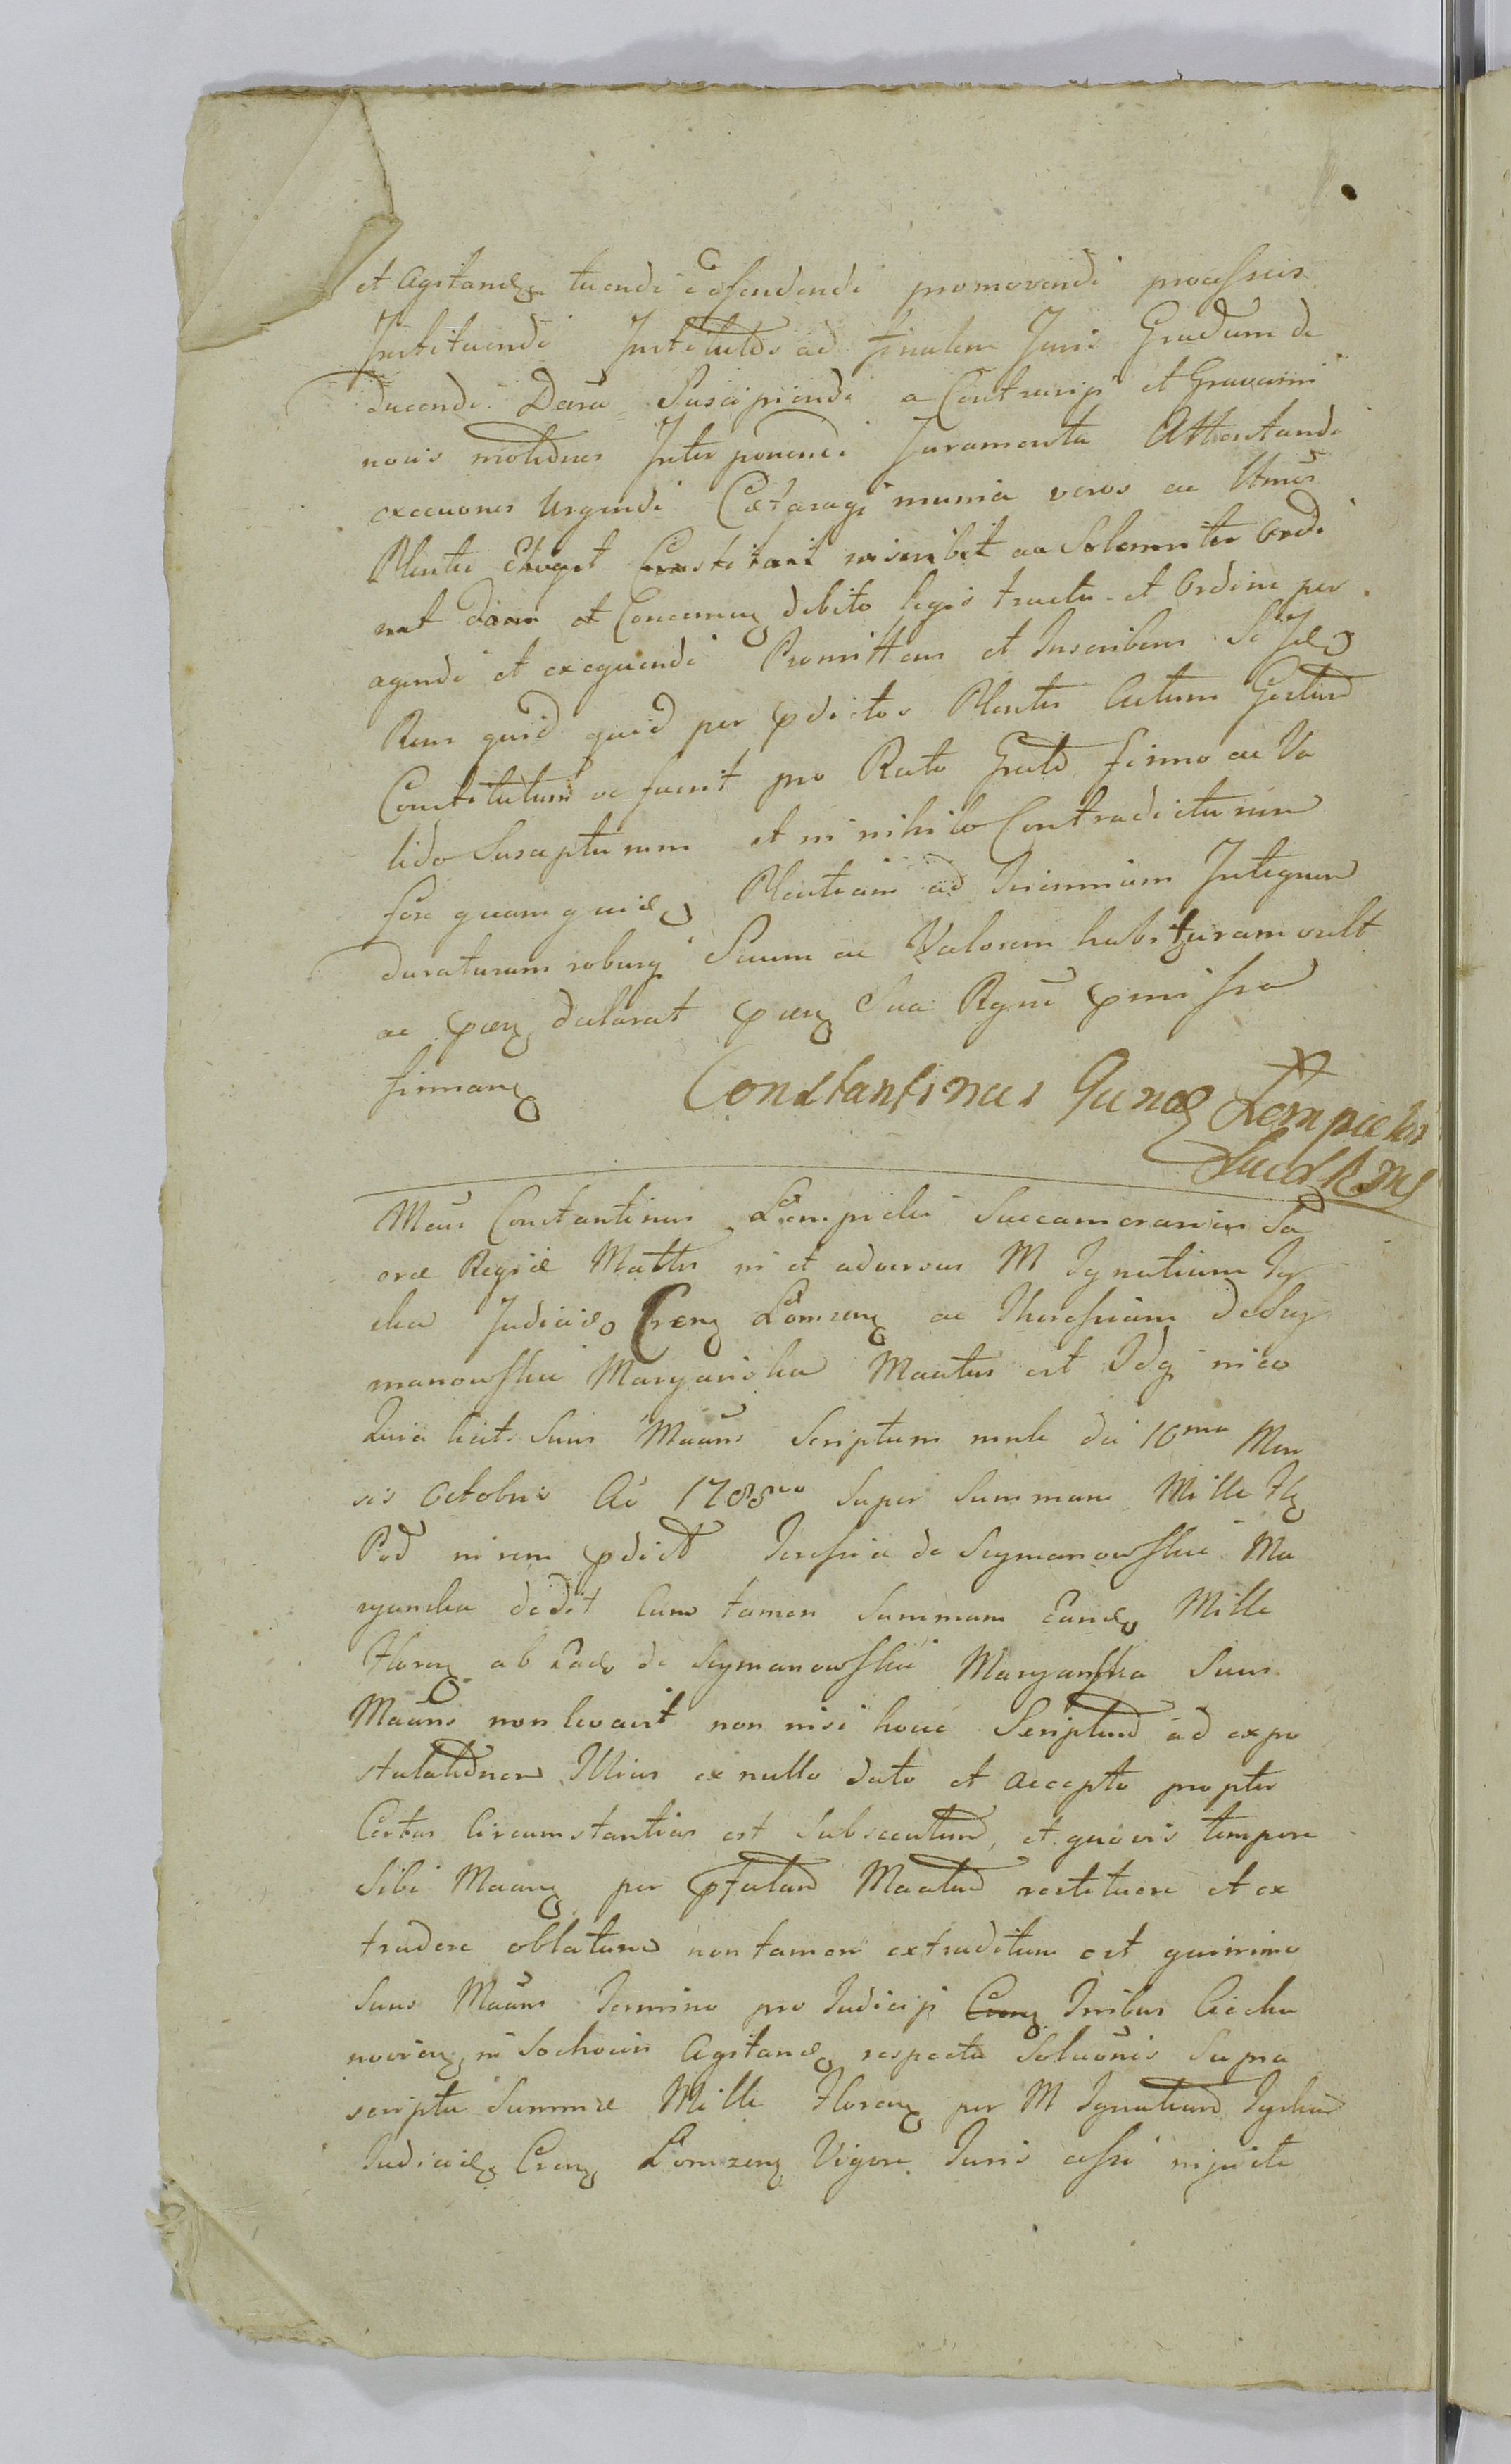 et Agitand tuendi defendendi promovendi processus
Instituendi Institutos ad finalem Juris Gradum de
ducendi Decreta Suscipiendi a Contrarijs et Gravami
nosis motiones Interponendi Juramenta Attentandi
execuones Urgendi Cæteraq munia veros ac Utmos
Plentes Elegit Constituit inscribit ac Solemniter Ordi
nat dans et Concemen debito legis tractu et Ordine per
agendi et exequendi Promittens et Inscribens Se Id
Rem quid quid per pdictos Plentes Actum Gestum
Constitutum ve fuerit pro Rato Grato firmo ac Va
lido Suscepturum et in nihilo Contradicturum
fore quamquid Plentiam ad Triennium Integrum
duraturam roburq Suum ac Valorem habituram vult
ac pen declarat pen Sua Rgne pmissa
firman Constantinus Łempicki
Succ R M
Maus Constantinus Łempicki Succamerarius Sa
cræ Regiæ Mattis in et adversus M Ignatium
Judicid Cren Łomzen ac Theresiam de Szy
manowskie Maryańska Maatus est Idq in eo
Quia licet Suus Maans Scriptum mnle die 10ma Men
sis Octobris Ao 1788vo Super Summam Mille Fl
Pol in rem pdict Teresiæ de Szymanowskie Ma
ryanska dedit Cum tamen Summam Eand Mille
Floren ab Ead de Szymanowskie Maryanska Suus
Maans non levavit non nisi hocce Scriptum ad expo
stulationem Illius ex nullo dato et accepto propter
Certas Circumstantias est Subsecutum, et quovis tempore
Sibi Maan per pfatam Maatam restituere et ex
tradere oblatum non tamen extraditum est quinimo
Suus Maans Termino pro Judicijs Tribus Ciecha
novien in Sochocin Agitand respectu Soluonis Supra
scriptæ Summæ Mille Floren per M Ignatium
Judicid Cren Łomzen Vigore Juris cessi injuste